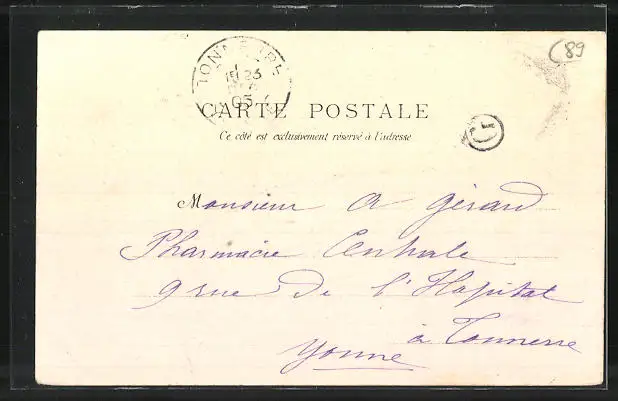 (89
TONNERRE
23
05
CARTE POSTALE
Ce côté est exclusivement réservé à l'adresse
D
Monsieur A Gérard
Pharmacie Centrale
9 rue de l'Hopital
à Tonnerre
Yonne